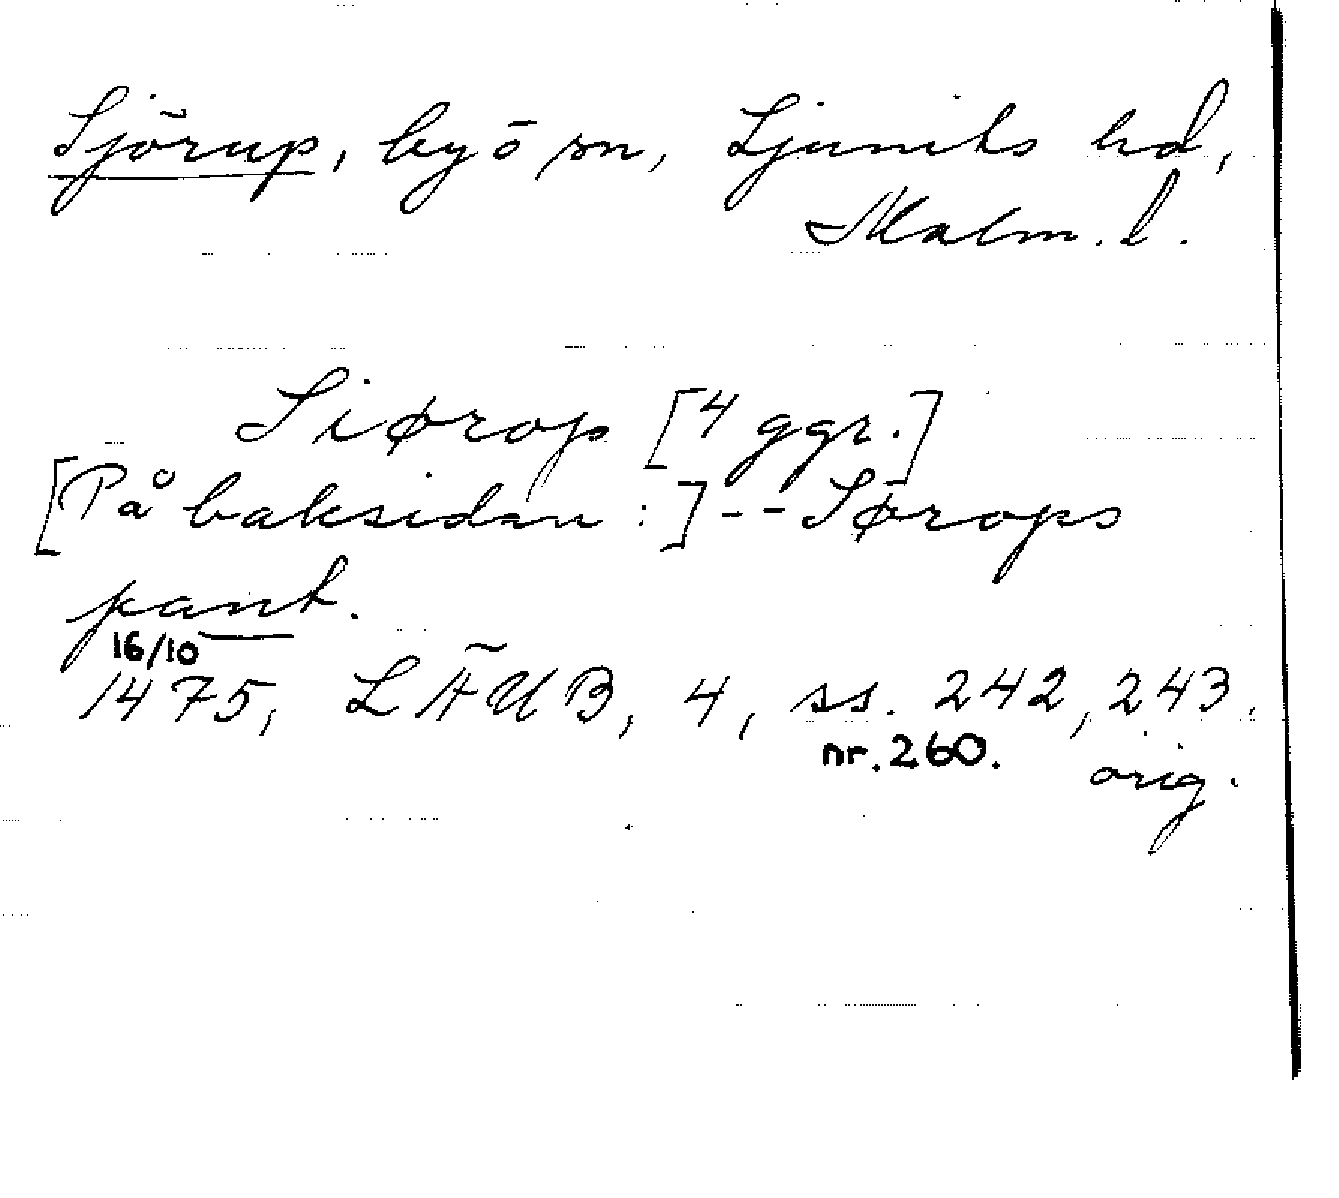 Sjörup, by o sn, Ljunits hd,
Malm. l.
Siørop [4 ggr.]
[På baksidan :] -- Sørops
pant.
16/10
1475, LÄUB, 4, ss. 242, 243.
nr. 260. orig.